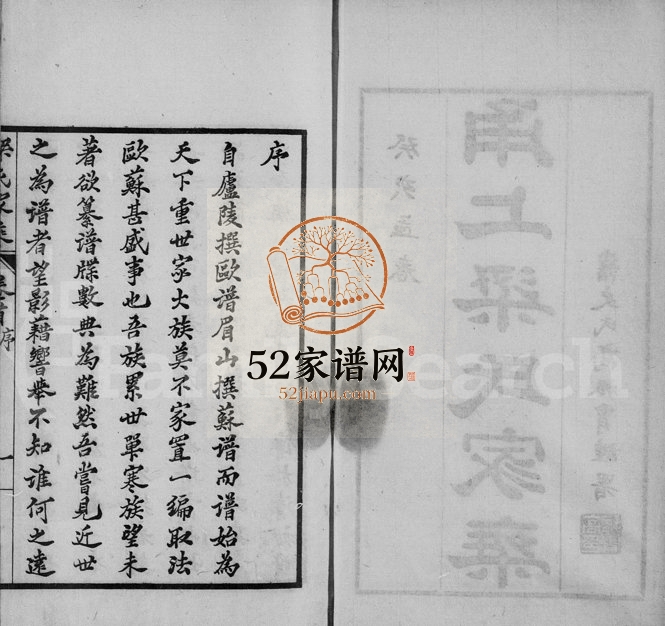 甬上梁氏家乘
癸亥孟春
序
自廬陵撰歐譜眉山撰蘇譜而譜始為
天下重世家大族莫不家置一編取法
歐蘇甚盛事也吾族累世單寒族望未
著欲纂譜牒數典為難然吾嘗見近世
之為譜者望影藉響舉不知誰何之遠
梁氏家乘
卷首序
一
52家谱网
52jiapu.com
FamilySearch